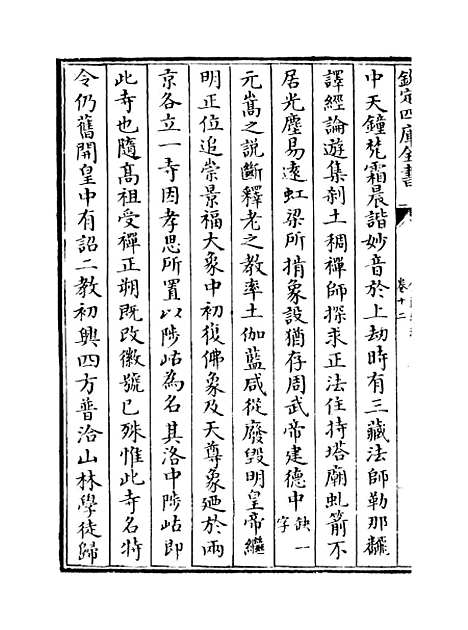 欽定四庫全書
卷十二
中天鐘梵霜晨諧妙音於上劫時有三藏法師勒那飜
譯經論遊集剎土稠禪師探求正法住持塔廟虬箭不
居光塵易遠虹梁所措象設猶存周武帝建德中缺一字
元嵩之說斷釋老之教率土伽藍咸從廢毁明皇帝繼
明正位追崇景福大象中初復佛象及天尊象廼於兩
京各立一寺因孝思所置以陟岵為名其洛中陟岵即
此寺也隨髙祖受禪正朔既改徽號已殊惟此寺名特
令仍舊開皇中有詔二教初興四方普洽山林學徒歸